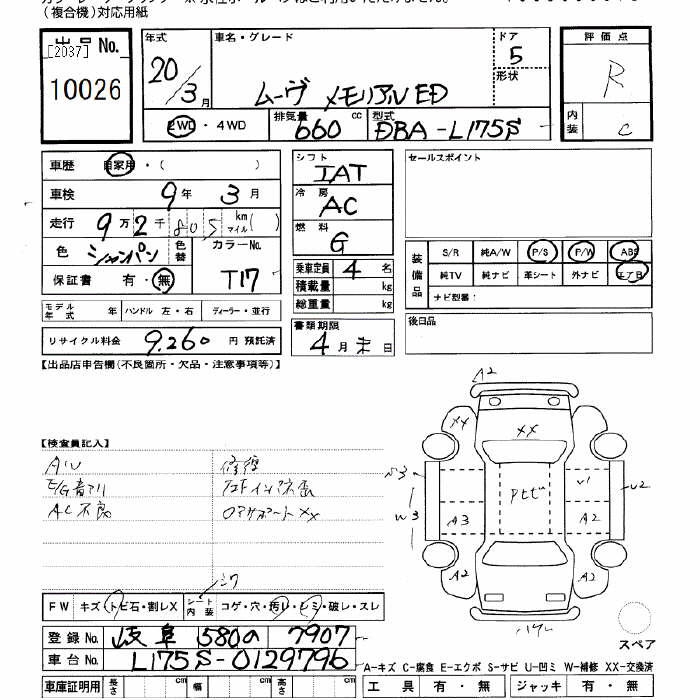 (複合機)対応用紙
出品No.
[2037]
10026
年式
20/3月
車名・グレード
ムーヴ メモリアルED
ドア
5
形状
評価点
R
内装
C
2WD・4WD
排気量
660 cc
型式
DBA-L175S
車歴 自家用・( )
車検 9年 3月
走行 9万2千805 km マイル( )
色 シャンパン 色替 カラーNo. T17
保証書 有・無
モデル年式 年 ハンドル 左・右 ディーラー・並行
リサイクル料金 9,260 円 預託済
シフト
IAT
冷房
AC
燃料
G
乗車定員 4 名
積載量 kg
総重量 kg
書類期限
4月末日
セールスポイント
装備品
S/R 純A/W P/S P/W ABS
純TV 純ナビ 革シート 外ナビ エアB
ナビ型番:
後日品
【出品店申告欄(不良箇所・欠品・注意事項等)】
【検査員記入】
A/U 修復
E/G音アリ
AC不良
FW キズ・トビ石・割レX シート内装 コゲ・穴・汚レ・シミ・破レ・スレ
登録No. 岐阜 580 の 7907
車台No. L175S-0129796
車庫証明用 長さ cm 幅 cm 高さ cm
A2
XX
XX
W3
A3
A2
U1
A2
U2
A2
スペア
A-キズ C-腐食 E-エクボ S-サビ U-凹ミ W-補修 XX-交換済
工具 有・無 ジャッキ 有・無